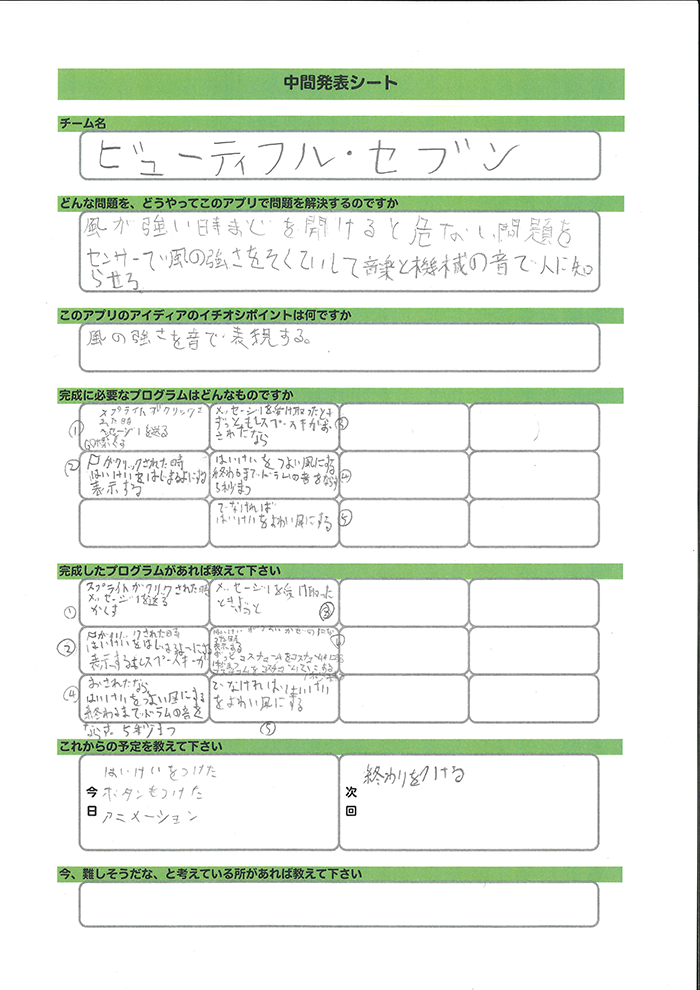 中間発表シート
チーム名
ビューティフル・セブン
どんな問題を、どうやってこのアプリで問題を解決するのですか
風が強い時まどを開けると危ない問題を
センサーで風の強さをそくていして音楽と機械の音で人に知
らせる
このアプリのアイディアのイチオシポイントは何ですか
風の強さを音で表現する。
完成に必要なプログラムはどんなものですか
① スプライトがクリックさ
れた時
メッセージ1を送る
かくす
メッセージ1を受け取ったとき
ずっともしスペースキーがお ③
されたなら
② がクリックされた時
はいけいをはじまるよにする
表示する
はいけいをつよい風にする
終わるまでドラムの音をならす ④
5秒まつ
でなければ
はいけいをよわい風にする ⑤
完成したプログラムがあれば教えて下さい
① スプライトがクリックされた時
メッセージ1を送る
かくす
メッセージ1を受け取った
ときよ
ずっと ③
② がクリックされた時
はいけいをはじまるよにする
表示するもしスペースキーが
④ おされたなら
はいけいをつよい風にする
終わるまでドラムの音を
ならす。5秒まつ
でなければはいけい
をよわい風にする
⑤
これからの予定を教えて下さい
今日
はいけいをつけた
ボタンもつけた
アニメーション
次回
終わりをつける
今、難しそうだな、と考えている所があれば教えて下さい